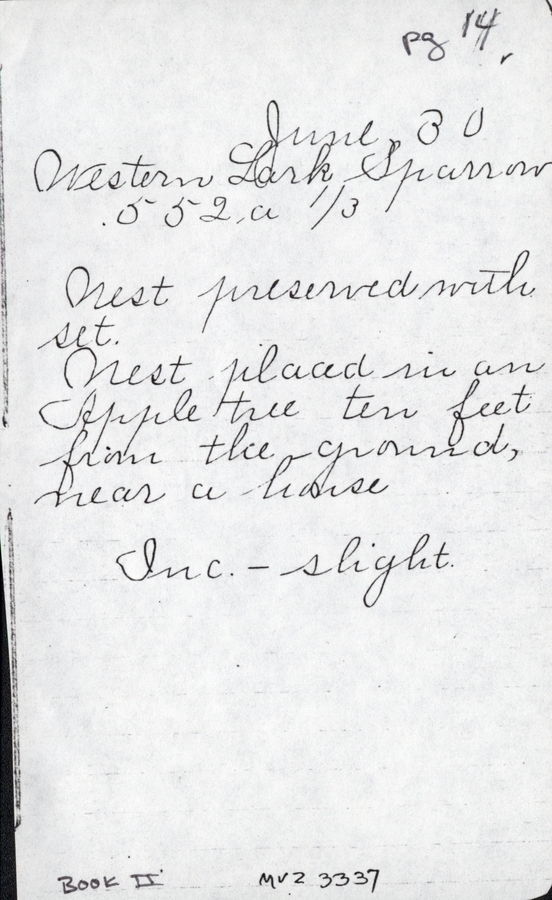 pg 14
June, 30
Western Lark Sparrow
.552.a 1/3
Nest preserved with
set.
Nest placed in an
Apple tree ten feet
from the ground,
near a house
Inc. - slight.
BOOK II MVZ 3337